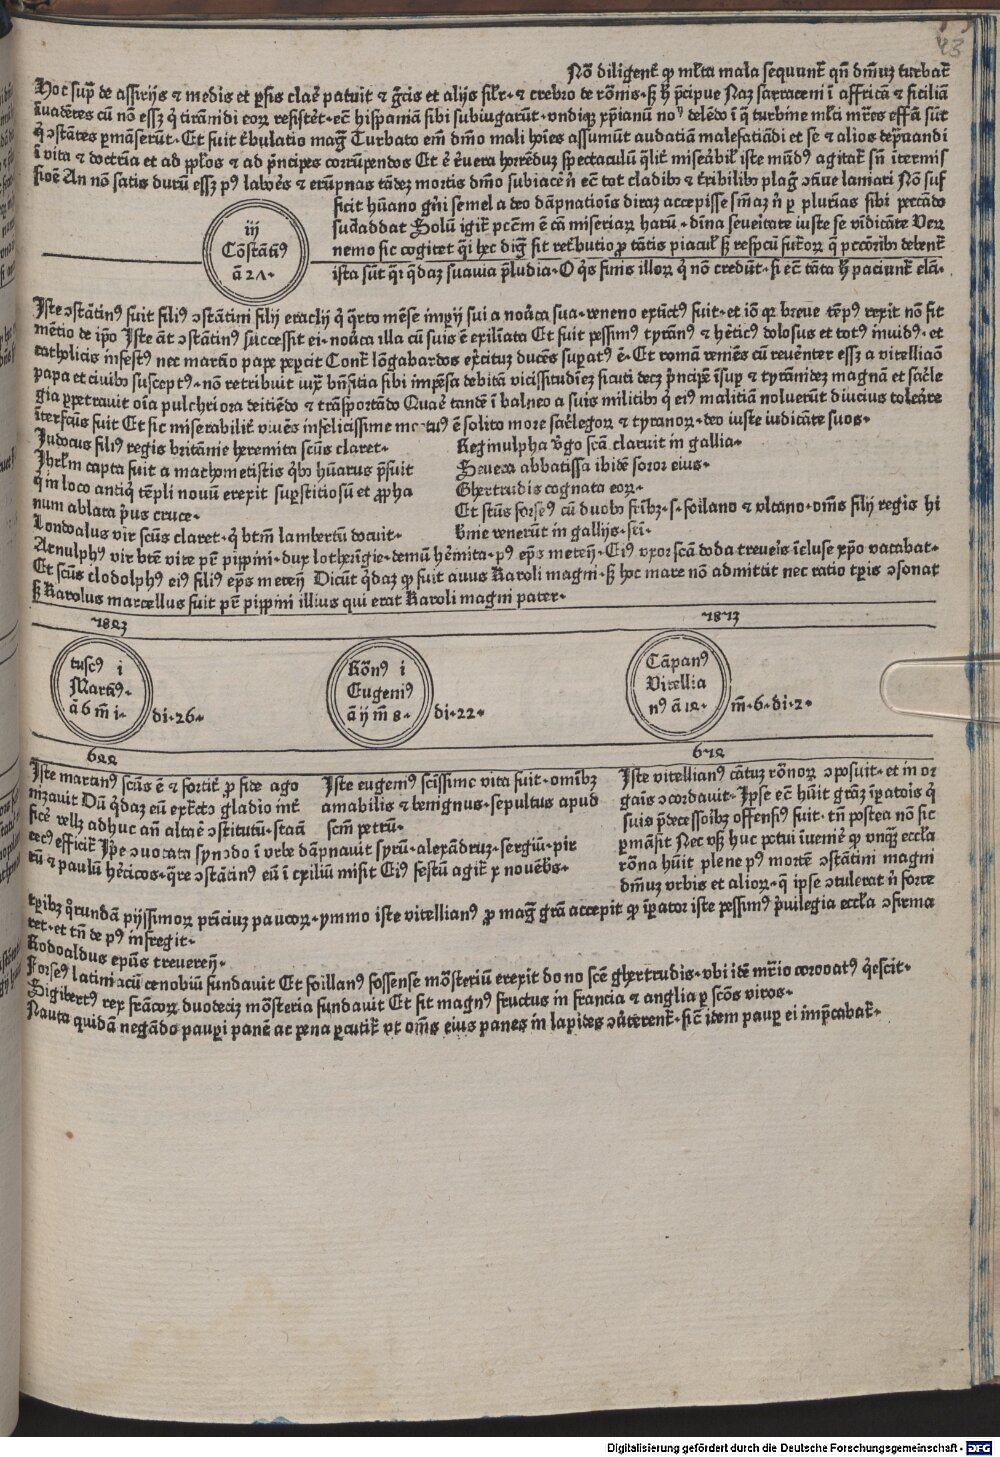 43
Nō diligent͛ ꝙ ml̃ta mala sequunt͛ qn̄ dm̄uz turbat͛
Hoc sup̄ de assirijs ⁊ medis et ꝑsis clae᷒ patuit ⁊ g̃cis et alijs sil͛r· ⁊ crebro de rōmis· sꝫ ħ p̄cipue Naꝫ sarraceni ī affricā ⁊ siciliā
īuadētes cū nō essꝫ q̇ tirānidi eoꝝ resistet᷒· ec̄ hispaniā sibi subiugarūt· vndiqꝫ xp̄ianū
q̇ ↄstātes ꝑmāserūt· Et fuit t͛bulatio mag̃ Turbato em̄ dm̄o mali hoīes assumūt audatiā malefatiādi et se ⁊ alios dep̄uandi
ī vita ⁊ doctrīa et ad ꝓp̄los ⁊ ad p̄ncipes corrūpendos Et ē v᷒era horrēduꝫ spectaculū qͥlit͛ miseābil͛ iste mūdꝰ agitat͛ sn̄ īt͛mis
sioē An nō satis durū essꝫ pꝰ labores ⁊ erūpnas tādeꝫ mortis dm̄o subiacē n̄ ec̄ tot cladibꝰ ⁊ t͛ribilibꝰ plag̃ laniari Nō suf
ficit hūano gn̄i semel a deo dāpnatiōis diraꝫ accepisse sn̄iaꝫ n̄ ꝑ plurīas sibi peccādo
suaddat Solū igit͛ pccm̄ ē cā miseriaꝝ haꝝ· dīna seueitate iuste se vīdicāte Veꝝ
nemo sic cogitet qͥ hec dig̃ sit ret͛butio ꝓ tātis piacul͛ sꝫ respcū futoꝝ q̄ pccōribꝰ debent͛
ista sūt qͥ q̇daꝫ suauia p̄ludia· O q̇s finis illoꝝ q̇ nō credūt· si ec̄ tāta ħ paciunt͛ elā·
iij
Cōstātiꝰ
ā 27·
Iste ↄstātinꝰ fuit filiꝰ ↄstātini filij eraclij q̇ qͣrto mēse imꝑij sui a nou͛ca sua· veneno extīctꝰ fuit· et iō qꝛ breue tēpꝰ rexit nō fit
mētio de ip̄o Iste āt ↄstātinꝰ successit ei· nou͛ca illa cū suis ē exiliata Et fuit pessimꝰ tyrānꝰ ⁊ hēticꝰ dolosus et totꝰ inuidꝰ· et
catholicis infestꝰ nec martīo pape peꝑcit Cont͛ lōgabardos ex͛cituꝫ ducēs suꝑatꝰ ē· Et romā veniēs cū reuēnter essꝫ a vitelliāo
papa et ciuibꝰ susceptꝰ· nō retribuit iuxͣ bn̄ficia sibi impēsa debitā vicissitudīeꝫ sicuti decꝫ p̄ncipē īsuꝑ ⁊ tyrānideꝫ magnā et sacͥle
gia ꝑpetrauit oīa pulchriora deitiēdo ⁊ trāsportādo Quaē tandē ī balneo a suis militibꝰ q̇ eiꝰ malitiā noluerūt diucius toleāre
īterfctūs fuit Et sic miserabilit͛ viuēs infelicissime mortuꝰ ē solito more sacͥlegoꝝ ⁊ tyranoꝝ· deo iuste iudicāte suos·
Iudocus filiꝰ regis britānie heremita scūs claret·
Ihrl̃m capta fuit a machometistis q̇bꝰ hūarus p̄fuit
q̇ in loco antiqͥ tēpli nouū erexit suꝑstitiosū et ꝓpha
num ablata pͥus cruce·
Londoalus vir scūs claret· q̇ btm̄ lambertū docuit·
Regmulpha vͥgo scā claruit in gallia·
Seuera abbatissa ibidē soror eiꝰ·
Ghertrudis cognata eoꝝ·
Et scūs forseꝰ cū duobꝰ frībꝫ· s· foilano ⁊ vltano· om̄s filij regis hi
bnie venerūt in gallijs· sci·
Arnulphꝰ vir btē vite pr͛ pippini· dux lothrīgie· demū hēmita· pꝰ ep̄s meteñ· Eiꝰ vxor scā doda treueris īcluse xp̄o vacabat·
Et scūs clodolphꝰ eiꝰ filiꝰ ep̄s meteñ Dicūt q̇daꝫ ꝙ fuit auus Karoli magni· sꝫ hoc mare nō admittit nec ratio tꝑis ↄsonat
sꝫ Karolus marcellus fuit pr͛ pippini illius qui erat Karoli magni pater·
5823
5853
tuscꝰ i
Martīꝰ·
ā 6 m̄ i· di· 26·
Rōnꝰ i
Eugeniꝰ
ā ij m̄ 8· di· 22·
Cāpanꝰ
Vitellia
nꝰ ā 14· m̄· 6· di· 2·
624
654
Iste martinꝰ scūs ē ⁊ fortit͛ ꝓ fide ago
nizauit Dū q̇daꝫ eū exīcto gladio īnt͛
ficē vellꝫ adhuc añ altaē ↄstitutū· statī
cecꝰ efficit͛ Ip̄e ↄuocata synodo ī vrbe dāpnauit syrū· alexādruꝫ· sergiū· pir
rū ⁊ paulū hēticos· qͣre ↄstātinꝰ eū ī exiliū misit Eiꝰ festū agit͛ x nouēbs·
Iste eugeniꝰ sc̄issime vita fuit· omībꝫ
amabilis ⁊ benignus· sepultus apud
scm̄ petrū·
Iste vitellianꝰ cātuꝫ rōnoꝝ ↄposuit· et in or
gaīs ↄcordauit· Ipse ec̄ hūit gr̄aꝫ īꝑatois q̇
suis p̄decessoībꝫ offensiꝰ fuit· tn̄ postea nō sic
ꝑmāsit Nec vsqꝫ huc potui īueniē ꝙ vnqͣꝫ eccl̃a
rōna hūit plene pꝰ mortē ↄstātini magni
dm̄uꝫ vrbis et alioꝝ· q̄ ipse ↄtulerat n̄ forte
tꝑibꝫ qͦrundā pijssimoꝝ prīcipuꝫ paucoꝝ· ymmo iste vitellianꝰ ꝓ mag̃ gr̄a accepit ꝙ īꝑator iste pessimꝰ pͥuilegia eccl̃a ↄfirma
ret· et tn̄ de pꝰ infregit·
Rodoaldus ep̄us treuereñ·
Forseꝰ latiniacū cenobiū fundauit Et foillanꝰ fossense mōsteriū erexit dono scē ghertrudis· vbi idē mr̄io coronatꝰ q̇escit·
Sigibertꝰ rex frācoꝝ duodeciꝫ mōsteria fundauit Et fit magnꝰ fructus in francia ⁊ anglia ꝑ scōs viros·
Nauta quidā negādo pauꝑi panē ac pena ꝑcutit͛ vt om̄s eius panes in lapides ↄu͛terent͛· sic̄ idem pauꝑ ei impͥcabat͛·
Digitalisierung gefördert durch die Deutsche Forschungsgemeinschaft - DFG